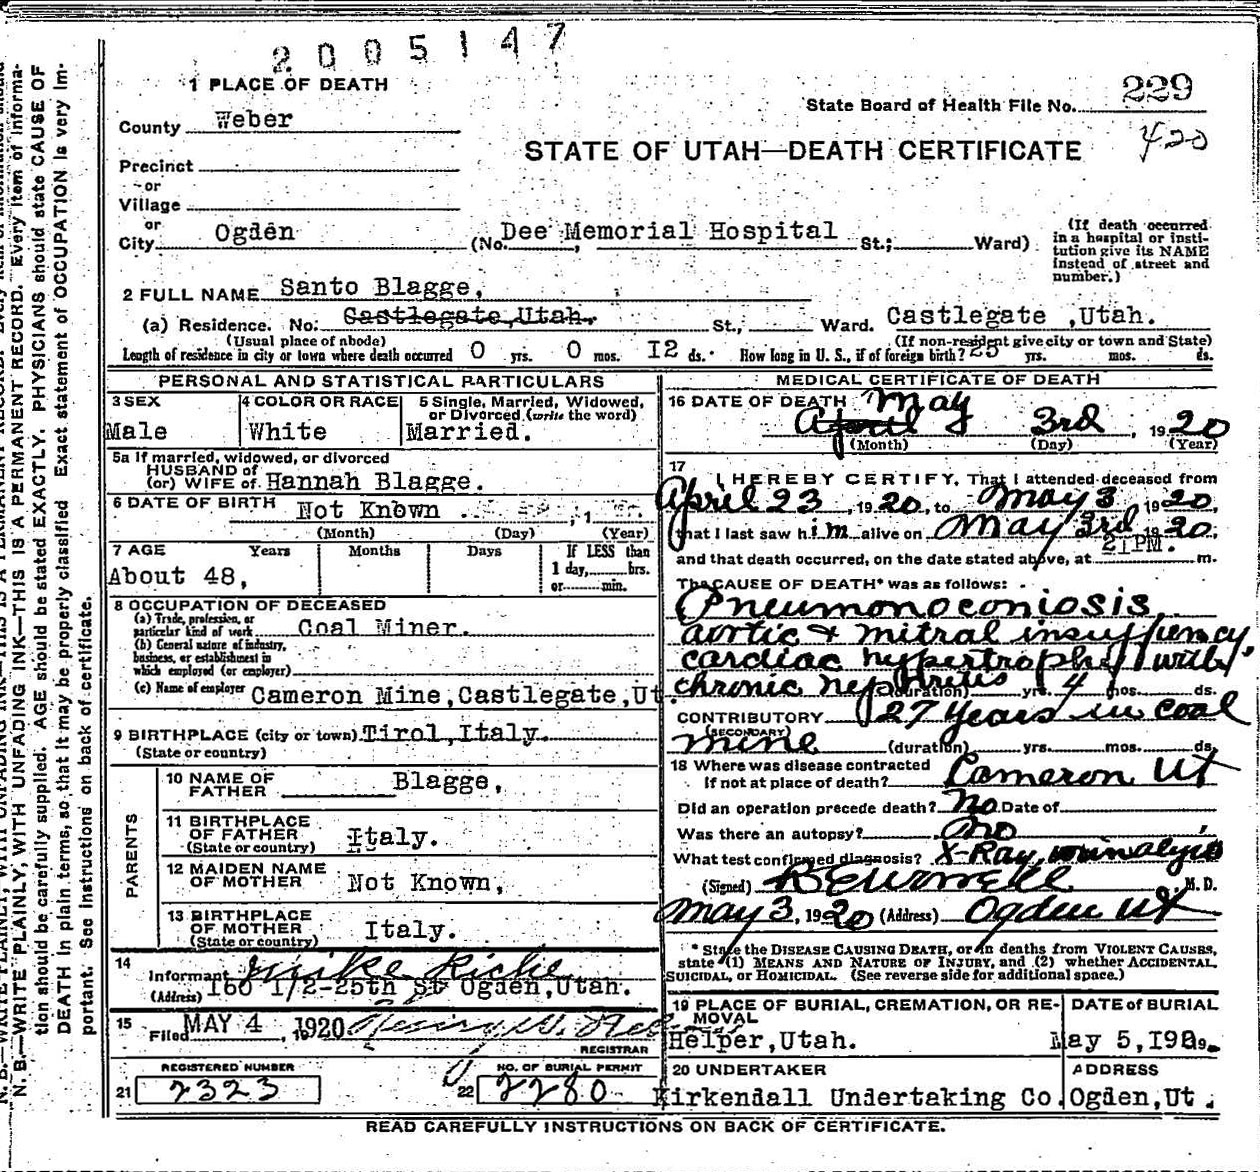 2005147
1 PLACE OF DEATH
State Board of Health File No. 229
County Weber
420
STATE OF UTAH—DEATH CERTIFICATE
Precinct
or
Village
or
City Ogden (No. Dee Memorial Hospital St.; Ward)
(If death occurred in a hospital or institution give its NAME instead of street and number.)
2 FULL NAME Santo Blagge,
(a) Residence. No. Castlegate, Utah. St., Ward. Castlegate ,Utah.
(Usual place of abode) (If non-resident give city or town and State)
Length of residence in city or town where death occurred 0 yrs. 0 mos. I2 ds. How long in U. S., if of foreign birth? 25 yrs. mos. ds.
PERSONAL AND STATISTICAL PARTICULARS
3 SEX 4 COLOR OR RACE 5 Single, Married, Widowed, or Divorced (write the word)
Male White Married.
5a If married, widowed, or divorced
HUSBAND of
(or) WIFE of Hannah Blagge.
6 DATE OF BIRTH Not Known , 1
(Month) (Day) (Year)
7 AGE Years Months Days If LESS than
1 day, hrs.
or min.
About 48,
8 OCCUPATION OF DECEASED
(a) Trade, profession, or particular kind of work Coal Miner.
(b) General nature of industry, business, or establishment in which employed (or employer)
(c) Name of employer Cameron Mine,Castlegate,Ut
9 BIRTHPLACE (city or town) Tirol,Italy.
(State or country)
PARENTS
10 NAME OF FATHER Blagge,
11 BIRTHPLACE OF FATHER Italy.
(State or country)
12 MAIDEN NAME OF MOTHER Not Known,
13 BIRTHPLACE OF MOTHER Italy.
(State or country)
14
Informant Mike
(Address) 160 1/2-25th St Ogden,Utah.
15 Filed MAY 4 1920 Henry W.
REGISTRAR
REGISTERED NUMBER NO. OF BURIAL PERMIT
21 2323 22 2280
MEDICAL CERTIFICATE OF DEATH
16 DATE OF DEATH May
April 3rd , 1920
(Month) (Day) (Year)
17
I HEREBY CERTIFY, That I attended deceased from
April 23, 1920, to May 3 1920,
that I last saw him alive on May 3rd 1920,
and that death occurred, on the date stated above, at 21PM. m.
The CAUSE OF DEATH* was as follows:
Pneumonoconiosis
aortic & mitral insufficiency
cardiac hypertrophy with
chronic nephritis (duration) yrs. 4 mos. ds.
CONTRIBUTORY 27 years in coal
(SECONDARY)
mine (duration) yrs. mos. ds.
18 Where was disease contracted
If not at place of death? Cameron Ut
Did an operation precede death? No Date of
Was there an autopsy? No
What test confirmed diagnosis? X-Ray, urinalysis
(Signed) M.D.
May 3, 1920 (Address) Ogden Ut
* State the DISEASE CAUSING DEATH, or in deaths from VIOLENT CAUSES,
state (1) MEANS AND NATURE OF INJURY, and (2) whether ACCIDENTAL
SUICIDAL, or HOMICIDAL. (See reverse side for additional space.)
19 PLACE OF BURIAL, CREMATION, OR REMOVAL DATE of BURIAL
Helper,Utah. May 5,I920.
20 UNDERTAKER ADDRESS
Kirkendall Undertaking Co. Ogden,Ut.
READ CAREFULLY INSTRUCTIONS ON BACK OF CERTIFICATE.
N. B.—WRITE PLAINLY, WITH UNFADING INK—THIS IS A PERMANENT RECORD. Every item of information should be carefully supplied. AGE should be stated EXACTLY. PHYSICIANS should state CAUSE OF DEATH in plain terms, so that it may be properly classified Exact statement of OCCUPATION is very important. See Instructions on back of certificate.